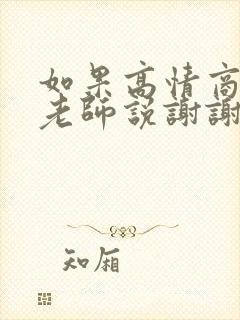 如果高情商
老師說謝謝
知厢